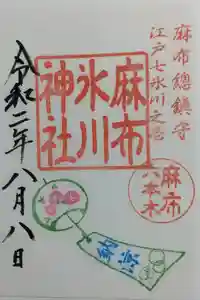 麻布總鎮守
江戸七氷川之壱
麻布
氷川
神社
麻布
六本木
令和二年八月八日
納涼